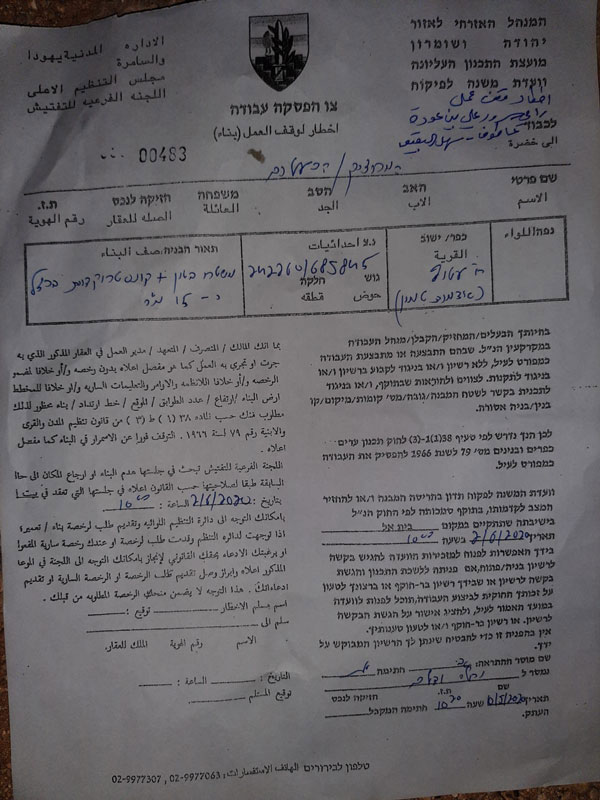 המנהל האזרחי לאזור
יהודה ושומרון
מועצת התכנון העליונה
וועדת משנה לפיקוח
الاداره المدنية يهودا
والسامرة
مجلس التنظيم الاعلى
اللجنه الفرعيه للتفتيش
צו הפסקת עבודה
اخطار لوقف العمل (بناء)
00483
لكبוד
الى حضرة
המחזיק / הבעלים
שם פרטי האב הסב משפחה חזיקה לנכס ת.ז.
الاسم الاب الجد العائلة الصله للعقار رقم الهوية
נפה/اللواء
כפר/ישוב
القرية
נ.צ احداثيات
גוש חלקה
حوض قطعه
תאור הבניה/وصف البناء
בהיותך הבעלים/המחזיק/הקבלן/מנהל העבודה
במקרקעין הנ"ל. שבהם התבצעה או מתבצעת העבודה
כמפורט לעיל, ללא רשיון ו/או בניגוד לקבוע ברשיון ו/או
בניגוד לתקנות. לצווים ולהוראות שבתוקף, ו/או בניגוד
לתכנית בקשר לשטח המבנה/גובה/מס' קומות/מיקום/קו
בנין/בניה אסורה.
לכן הנך נדרש לפי סעיף 38(1)-(3) לחוק תכנון ערים
כפרים ובנינים מס' 79 לשנת 1966 להפסיק את העבודה
כמפורט לעיל.
וועדת המשנה לפקוח תדון בהריסת המבנה ו/או להחזיר
המצב לקדמותו, בתוקף סמכותה לפי החוק הנ"ל
בישיבתה שתתקיים במקום בית אל
תאריך 2/6/2020 בשעה 10:00
בידך האפשרות לפנות למזכירות הוועדה להגיש בקשה
לרשיון בניה/פתוח, אם פניתה ללשכת התכנון והגשת
בקשה לרשיון או שבידך רשיון בר-חוקף או ברצונך לטעון
על זכותך החוקית לביצוע העבודה, תוכל לפנות לוועדה
במועד האמור לעיל, ולהציג אישור על הגשת הבקשה
לרשיון. או רשיון בר-חוקף ו/או לטעון טענותיך.
אין בהפניה זו כדי להבטיח שינתן לך הרשיון המבוקש על
ידך.
שם מוסר ההתראה: חתימה
נמסר ל
שם ת.ז. חזיקה לנכס
תאריך 2020 שעה חתימה המקבל
העתק.
بما انك المالك / المتصرف / المتعهد / مدير العمل في العقار المذكور الذي به
جرت او تجري به العمل كما هو مفصل اعلاه بدون رخصه و/أو خلافا لمضمون
الرخصه و/أو خلافا للانظمه والاوامر والتعليمات الساريه و/او خلافا للمخطط
ارض البناء / ارتفاع / عدد الطوابق / الموقع / خط ارتداد / بناء محظور لذلك
مطلوب منك حسب الماده ٣٨ (١) ط (٣) من قانون تنظيم المدن والقرى
والابنية رقم ٧٩ لسنة ١٩٦٦. التوقف فورا عن الاستمرار في البناء كما مفصل
اعلاه.
اللجنه الفرعيه للتفتيش تبحث في جلستها هدم البناء او ارجاع المكان الى حالته
السابقة طبقا لصلاحيتها حسب القانون اعلاه في جلستها التي تعقد في بيت ايل
بتاريخ: 2/6/2020 الساعة: 10:00
بامكانك التوجه الى دائرة التنظيم اللوائيه وتقديم طلب لرخصة بناء / تعمير؛
اذا توجهت لدائرة التنظيم وقدمت طلب لرخصة او عندك رخصة سارية المفعول
او برغبتك الادعاء بحقك القانوني لإنجاز بامكانك التوجه الى اللجنة في الموعد
المذكور اعلاه وابراز وصل لتقديم طلب الرخصة او الرخصة السارية او تقديم
ادعاءاتك. هذا التوجه لا يضمن منحك الرخصة المطلوبه من قبلك.
اسم مسلم الاخطار توقيع:
سلم الى
الاسم رقم الهوية المالك للعقار.
التاريخ: الساعة:
توقيع المستلم
טלפון לבירורים الهاتف الاستفسارات: 02-9977063, 02-9977307